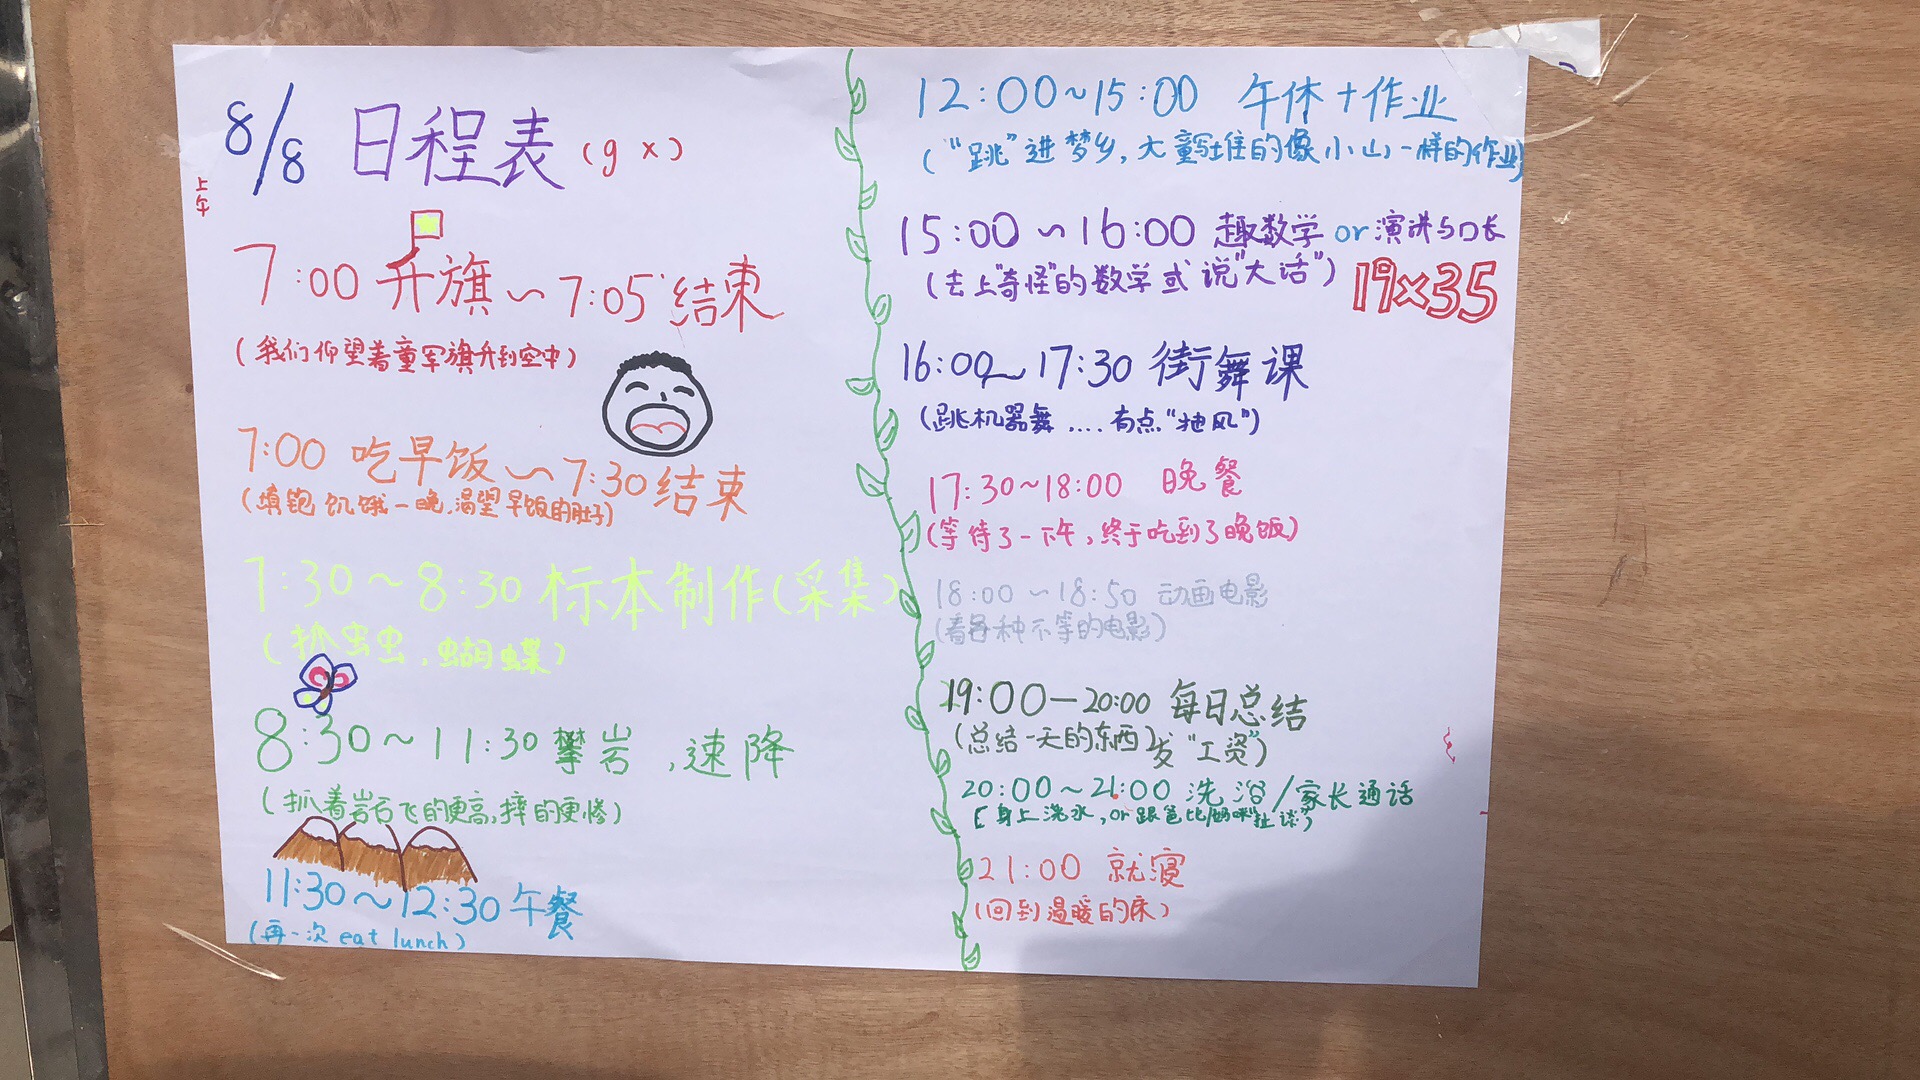 8/8 日程表 (g x)
上午
7:00 升旗 ~ 7:05 结束
(我们仰望着童军旗升到空中)
7:00 吃早饭 ~ 7:30 结束
(填饱饥饿一晚,渴望早饭的肚子)
7:30 ~ 8:30 标本制作(采集)
(抓虫虫,蝴蝶)
8:30 ~ 11:30 攀岩,速降
(抓着岩石飞的更高,摔的更惨)
11:30 ~ 12:30 午餐
(再一次 eat lunch)
12:00 ~ 15:00 午休 + 作业
("跳"进梦乡,大童写堆的像小山一样的作业)
15:00 ~ 16:00 趣数学 or 演讲与口长
(去上"奇怪"的数学或说"大话")
19×35
16:00 ~ 17:30 街舞课
(跳机器舞 .... 有点"抽风")
17:30 ~ 18:00 晚餐
(等待了一下午,终于吃到了晚饭)
18:00 ~ 18:50 动画电影
(看每种不等的电影)
19:00 — 20:00 每日总结
(总结一天的东西)发"工资")
20:00 ~ 21:00 洗浴/家长通话
[身上浇水, or 跟爸比/妈咪"扯谈")
21:00 就寝
(回到温暖的床)